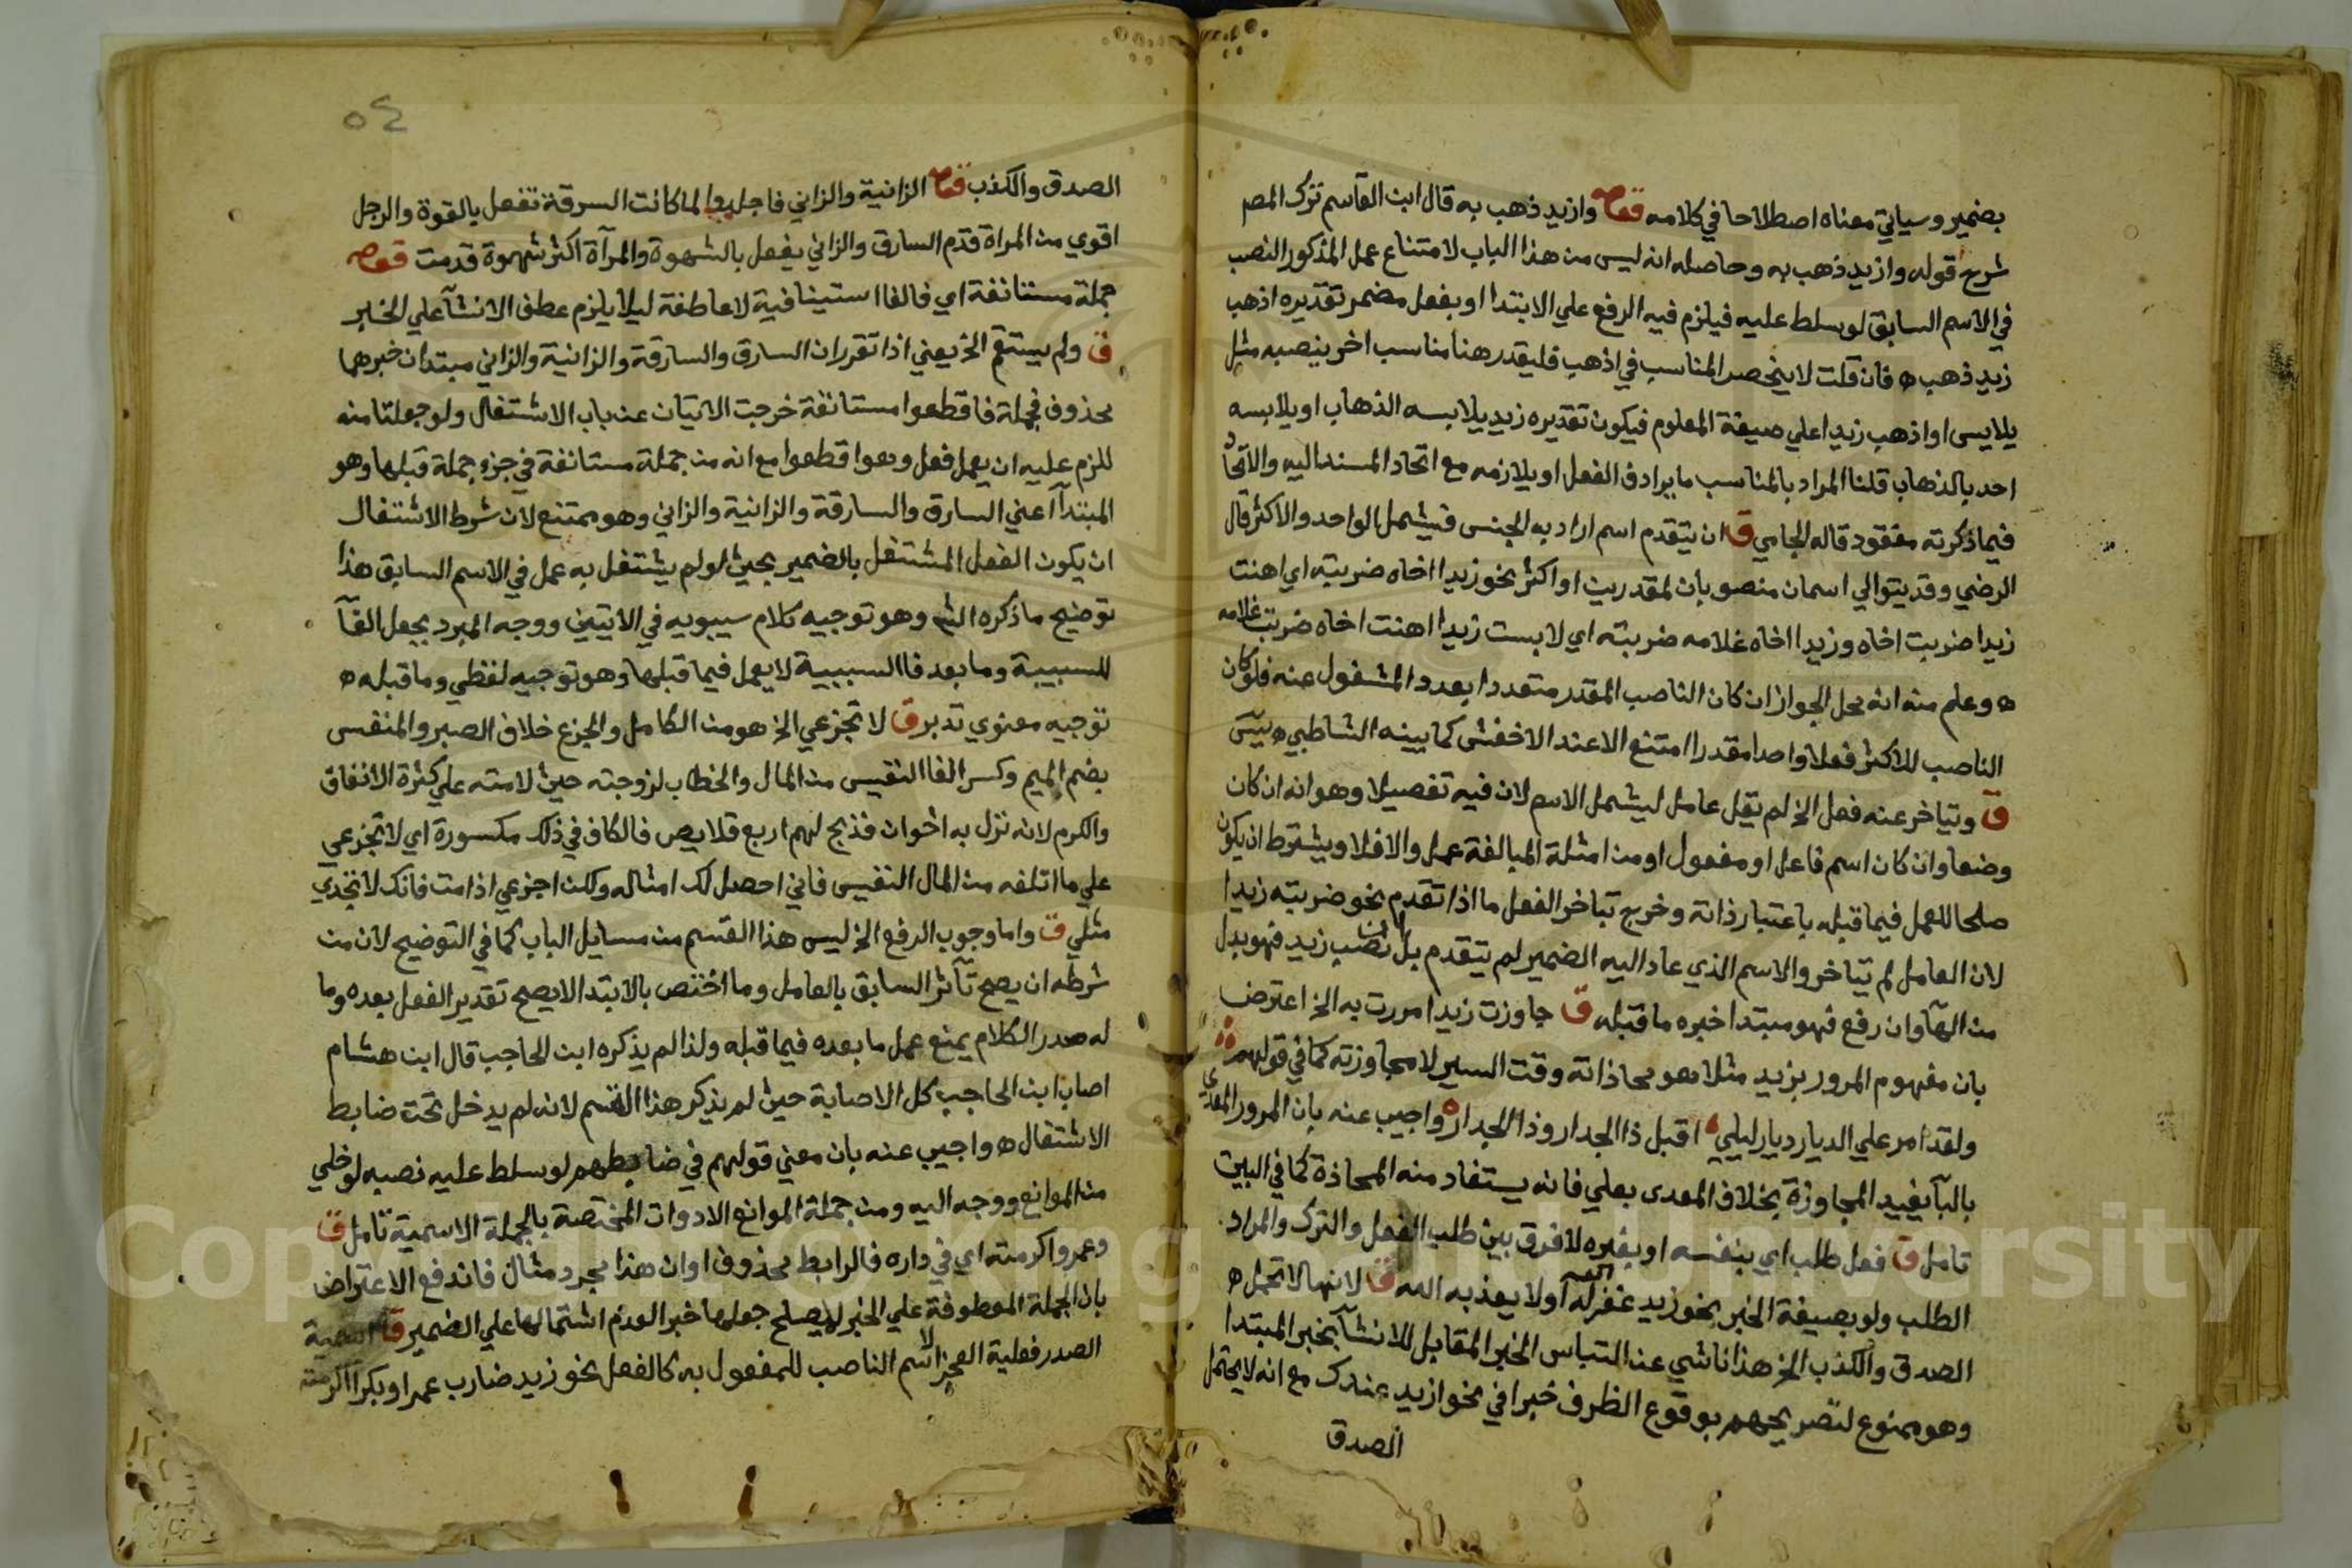 بضمير وسياتي معناه اصطلاحا في كلامه وازيد ذهب به قال ابن القاسم ترك المصم
شرح قوله وازيد ذهب به وحاصله انه ليس من هذا الباب لامتناع عمل المذكور النصب
في الاسم السابق لو سلط عليه فيلزم فيه الرفع علي الابتدا او بفعل مضمر تقديره اذهب
زيد ذهب ه فان قلت لا ينحصر المناسب في اذهب فليقدر هنا مناسب اخر ينصبه مثل
يلابس او اذهب زيدا علي صيغة المعلوم فيكون تقديره زيد يلابسه الذهاب او يلابسه
احد بالذهاب قلنا المراد بالمناسب ما يرادف الفعل او يلازمه مع اتحاد المسند اليه والاتحاد
فيما ذكرته مفقود قاله الجامي ق ان يتقدم اسم اراد به الجنس فيشمل الواحد والاكثر قال
الرضي وقد يتوالي اسمان منصوبان لمقدرين او اكثر نحو زيدا اخاه ضربته اي اهنت
زيدا ضربت اخاه وزيدا اخاه غلامه ضربته اي لابست زيدا اهنت اخاه ضربت غلامه
ه وعلم منه انه محل الجواز ان كان الناصب المقدر متعددا بعدد المشغول عنه فلو كان
الناصب للاكثر فعلا واحدا مقدرا امتنع الا عند الاخفش كما بينه الشاطبي ه يس
ق وتياخر عنه فعل الخ لم يقل عامل ليشمل الاسم لان فيه تفصيلا وهو انه ان كان
وضعا وان كان اسم فاعل او مفعول او من امثلة المبالغة عمل والا فلا ويشترط ان يكون
صلحا للعمل فيما قبله باعتبار ذاته وخرج تباخر الفعل ما اذا تقدم نحو ضربته زيدا
لان العامل لم يتاخر والاسم الذي عاد اليه الضمير لم يتقدم بل ان نصب زيد فهو بدل
من الهآ وان رفع فهو مبتدا خبره ما قبله ق جاوزت زيدا مررت به الخ اعترض
بان مفهوم المرور بزيد مثلا هو محاذاته وقت السير لا مجاوزته كما في قولهم
ولقد امر علي الديار ديار ليلي اقبل ذا الجدار وذا الجدار واجيب عنه بان المرور المعدي
بالبآ يفيد المجاوزة بخلاف المعدى بعلي فانه يستفاد منه المحاذة كما في البيت
تامل ق فعل طلب اي بنفسه او بغيره لا فرق بين طلب الفعل والترك والمراد
الطلب ولو بصيغة الخبر نحو زيد غفر له الله او لا يعذبه الله ق لانها لا تحتمل ه
الصدق والكذب الخ هذا ناشي عن التباس الخبر المقابل للانشآ بخبر المبتدا
وهو ممنوع لتصريحهم بوقوع الظرف خبرا في نحو ازيد عندك مع انه لا يحتمل
الصدق
٥٤
الصدق والكذب الزانية والزاني فاجلدوا لما كانت السرقة تفعل بالقوة والرجل
اقوي من المراة قدم السارق والزاني يفعل بالشهوة والمرآة اكثر شهوة قدمت
جملة مستانفة اي فالفا استينافية لا عاطفة ليلا يلزم عطف الانشآ علي الخبر
ق ولم يستقم الخ يعني اذا تقرر ان السارق والسارقة والزانية والزاني مبتدان خبرهما
محذوف فجملة فاقطعوا مستانفة خرجت الايتان عن باب الاشتغال ولو جعلتا منه
للزم عليه ان يعمل فعل وهو اقطعوا مع انه من جملة مستانفة في جزء جملة قبلها وهو
المبتدآ اعني السارق والسارقة والزانية والزاني وهو ممتنع لان شرط الاشتغال
ان يكون الفعل المشتغل بالضمير بحيث لو لم يشتغل به عمل في الاسم السابق هذا
توضيح ما ذكره الش وهو توجيه كلام سيبويه في الايتين ووجه المبرد بجعل الفآ
للسببية وما بعد فا السببية لا يعمل فيما قبلها وهو توجيه لفظي وما قبله ه
توجيه معنوي تدبر ق لا تجزعي الخ هو من الكامل والجزع خلاف الصبر والمنفس
بضم الميم وكسر الفا النفيس من المال والخطاب لزوجته حين لامته علي كثرة الانفاق
والكرم لانه نزل به اخوان فذبح لهم اربع قلايص فالكاف في ذلك مكسورة اي لا تجزعي
علي ما اتلفه من المال النفيس فاني احصل لك امثاله ولكن اجزعي اذا مت فانك لا تجدي
مثلي ق واما وجوب الرفع الخ ليس هذا القسم من مسايل الباب كما في التوضيح لان من
شرطه ان يصح تآثر السابق بالعامل وما اختص بالابتدا لا يصح تقدير الفعل بعده وما
له صدر الكلام يمنع عمل ما بعده فيما قبله ولذا لم يذكره ابن الحاجب قال ابن هشام
اصاب ابن الحاجب كل الاصابة حين لم يذكر هذا القسم لانه لم يدخل تحت ضابط
الاشتغال ه واجيب عنه بان معني قولهم في ضابطهم لو سلط عليه نصبه لو خلي
من الموانع ووجه اليه ومن جملة الموانع الادوات المختصة بالجملة الاسمية تامل ق
وعمرو اكرمته اي في داره فالرابط محذوف او ان هذا مجرد مثال فاندفع الاعتراض
بان الجملة المعطوفة علي الخبر لا يصلح جعلها خبرا لعدم اشتمالها علي الضمير ق اسمية
الصدر فعلية العجز لا اسم الناصب للمفعول به كالفعل نحو زيد ضارب عمرا وبكرا اكرمته